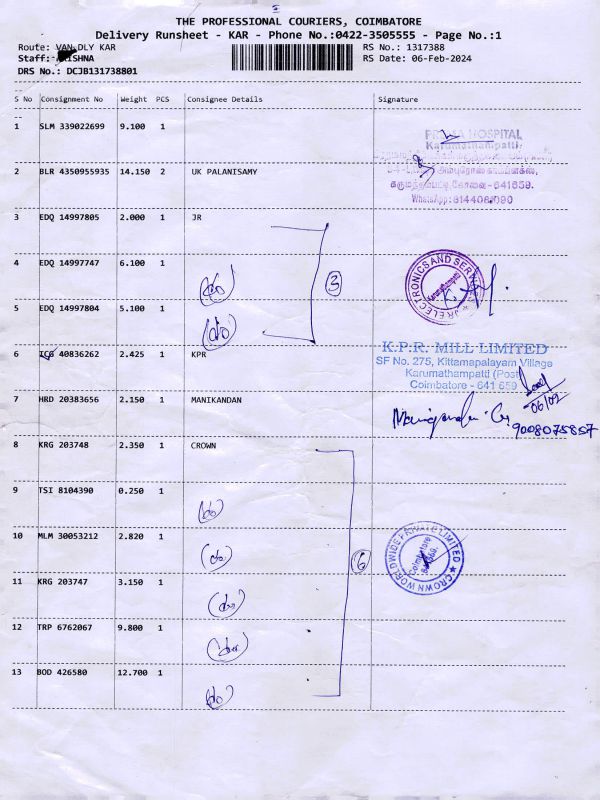 THE PROFESSIONAL COURIERS, COIMBATORE
Delivery Runsheet - KAR - Phone No.:0422-3505555 - Page No.:1
Route: VAN DLY KAR
RS No.: 1317388
Staff: KRISHNA
RS Date: 06-Feb-2024
DRS No.: DCJB131738801
S No Consignment No Weight PCS Consignee Details Signature
1 SLM 339022699 9.100 1
PRIMA HOSPITAL
Karumathampatti
2 BLR 4350955935 14.150 2 UK PALANISAMY
கருமத்தம்பட்டி,கோவை-641659.
WhatsApp:8144081090
3 EDQ 14997805 2.000 1 JR
4 EDQ 14997747 6.100 1 (do)
3
JR ELECTRONICS AND SERVICES
Karumathampatti
5 EDQ 14997804 5.100 1 (do)
6 ICG 40836262 2.425 1 KPR
K.P.R. MILL LIMITED
SF No. 275, Kittampalayam Village
Karumathampatti (Post)
Coimbatore - 641 659
06/09
7 HRD 20383656 2.150 1 MANIKANDAN
9008075857
8 KRG 203748 2.350 1 CROWN
9 TSI 8104390 0.250 1 (do)
10 MLM 30053212 2.820 1 (do)
6
CROWN WORLDWIDE PRIVATE LIMITED
Coimbatore
11 KRG 203747 3.150 1 (do)
12 TRP 6762067 9.800 1 (do)
13 BOD 426580 12.700 1 (do)